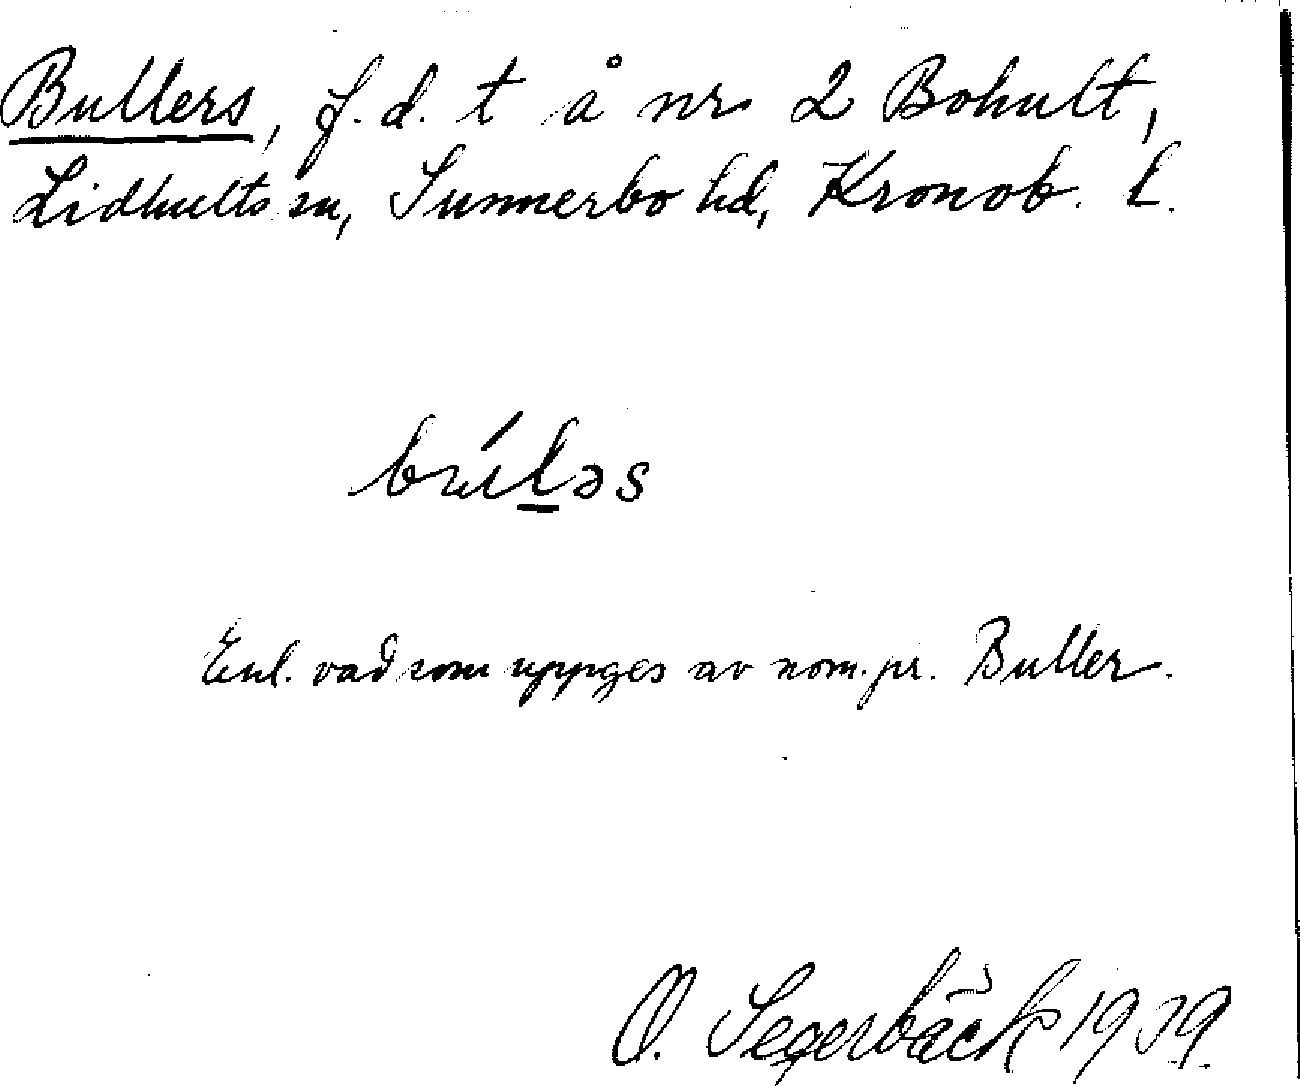 Bullers, f. d. t å nr 2 Bohult,
Lidhults sn, Sunnerbo hd, Kronob. l.
Enl. vad som uppges av nom. pr. Buller.
O. Segerbäck 1939.